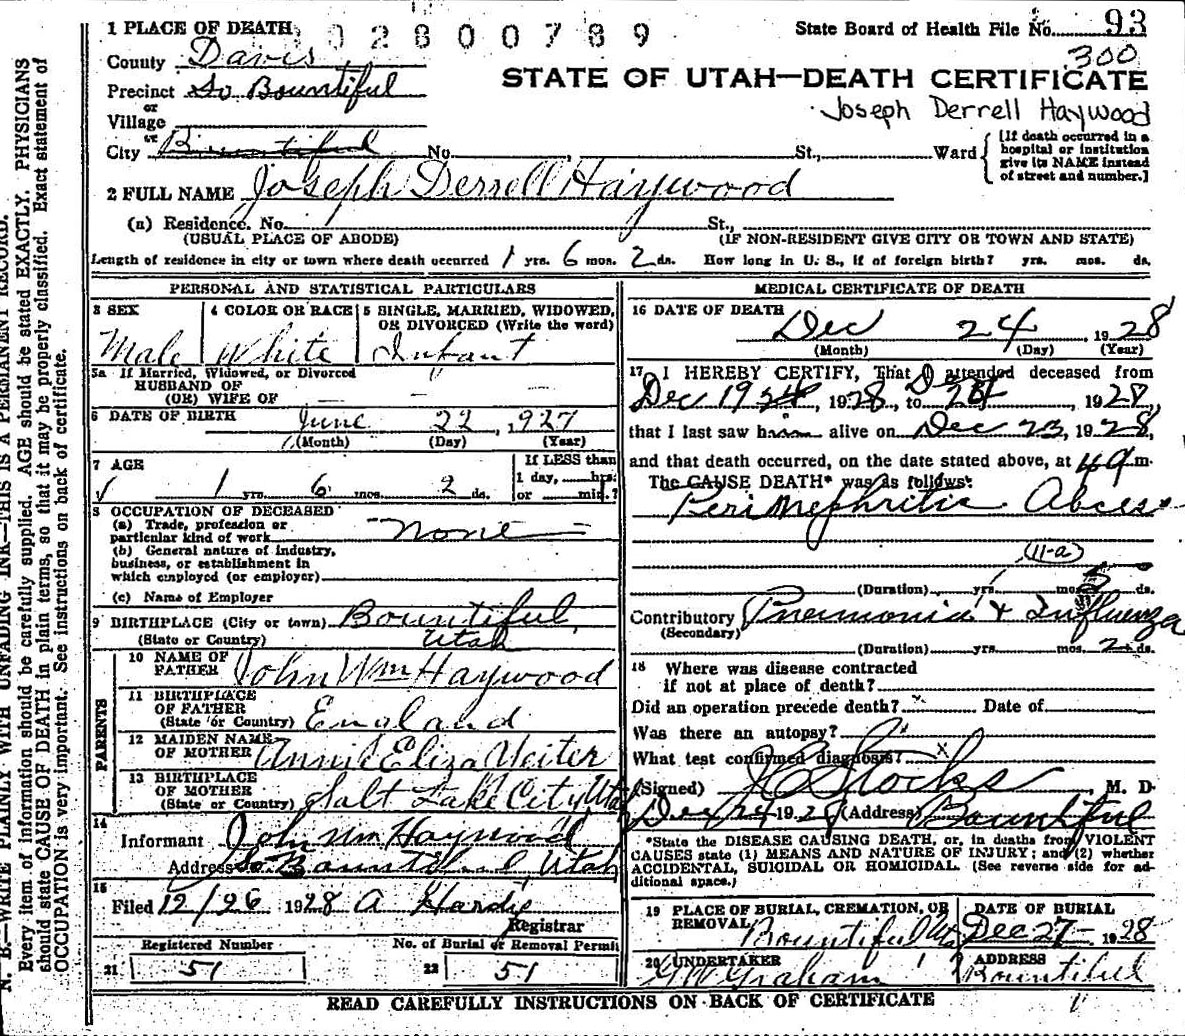 1 PLACE OF DEATH 02800789 State Board of Health File No. 93
County Davis 300
Precinct So Bountiful STATE OF UTAH—DEATH CERTIFICATE
or
Village Joseph Derrell Haywood
or
City Bountiful No. St., Ward [If death occurred in a hospital or institution give its NAME instead of street and number.]
2 FULL NAME Joseph Derrell Haywood
(a) Residence. No. St.,
(USUAL PLACE OF ABODE) (IF NON-RESIDENT GIVE CITY OR TOWN AND STATE)
Length of residence in city or town where death occurred 1 yrs. 6 mos. 2 ds. How long in U. S., if of foreign birth? yrs. mos. ds.
PERSONAL AND STATISTICAL PARTICULARS
3 SEX 4 COLOR OR RACE 5 SINGLE, MARRIED, WIDOWED,
OR DIVORCED (Write the word)
Male White Infant
5a If Married, Widowed, or Divorced
HUSBAND OF
(OR) WIFE OF
6 DATE OF BIRTH June 22, 1927
(Month) (Day) (Year)
7 AGE If LESS than
1 day, hrs.
1 yrs. 6 mos. 2 ds. or min.?
8 OCCUPATION OF DECEASED
(a) Trade, profession or
particular kind of work None
(b) General nature of industry,
business, or establishment in
which employed (or employer)
(c) Name of Employer
9 BIRTHPLACE (City or town) Bountiful
(State or Country) Utah
PARENTS
10 NAME OF
FATHER John Wm Haywood
11 BIRTHPLACE
OF FATHER
(State or Country) England
12 MAIDEN NAME
OF MOTHER Annie Eliza
13 BIRTHPLACE
OF MOTHER
(State or Country) Salt Lake City Utah
14
Informant John Wm Haywood
Address So. Bountiful, Utah
15
Filed 12/26 1928 A Hardy
Registrar
Registered Number No. of Burial or Removal Permit
21 51 22 51
MEDICAL CERTIFICATE OF DEATH
16 DATE OF DEATH
Dec 24, 1928
(Month) (Day) (Year)
17 I HEREBY CERTIFY, That I attended deceased from
Dec 19, 1928, to Dec 24, 1928,
that I last saw him alive on Dec 23, 1928,
and that death occurred, on the date stated above, at 4 a m.
The CAUSE DEATH* was as follows:
Peri Nephritic Abcess
(11-a)
(Duration) yrs. mos. 5 ds.
Contributory Pnemonia + Influenza
(Secondary)
(Duration) yrs. mos. 2 ds.
18 Where was disease contracted
if not at place of death?
Did an operation precede death? Date of
Was there an autopsy?
What test confirmed diagnosis? x
(Signed) J C Stocks, M. D.
Dec 24 1928 (Address) Bountiful
*State the DISEASE CAUSING DEATH, or, in deaths from VIOLENT
CAUSES state (1) MEANS AND NATURE OF INJURY; and (2) whether
ACCIDENTAL, SUICIDAL OR HOMICIDAL. (See reverse side for ad-
ditional space.)
19 PLACE OF BURIAL, CREMATION, OR DATE OF BURIAL
REMOVAL Bountiful Ut Dec 27 1928
20 UNDERTAKER ADDRESS
G W Graham Bountiful
READ CAREFULLY INSTRUCTIONS ON BACK OF CERTIFICATE
N. B.—WRITE PLAINLY WITH UNFADING INK—THIS IS A PERMANENT RECORD.
Every item of information should be carefully supplied. AGE should be stated EXACTLY. PHYSICIANS
should state CAUSE OF DEATH in plain terms, so that it may be properly classified. Exact statement of
OCCUPATION is very important. See instructions on back of certificate.